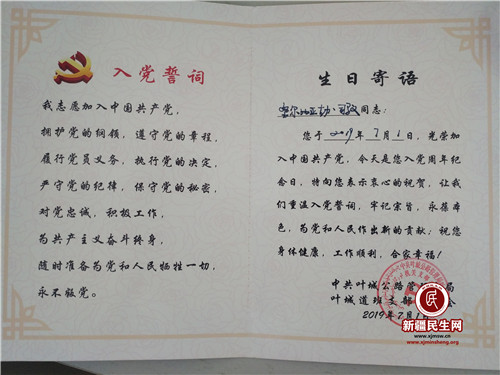 入党誓词
我志愿加入中国共产党，
拥护党的纲领，遵守党的章程，
履行党员义务，执行党的决定，
严守党的纪律，保守党的秘密，
对党忠诚，积极工作，
为共产主义奋斗终身，
随时准备为党和人民牺牲一切，
永不叛党。
生日寄语
同志：
您于2019年7月1日，光荣加
入中国共产党，今天是您入党周年纪
念日，特向您表示衷心的祝贺，让我
们重温入党誓词，牢记宗旨，永葆本
色，为党和人民作出新的贡献；祝您
身体健康，工作顺利，合家幸福！
中共叶城公路管局
叶城道班支部会
2019年7月1日
新疆民生网
www.xjmsw.cn
www.xjminsheng.org